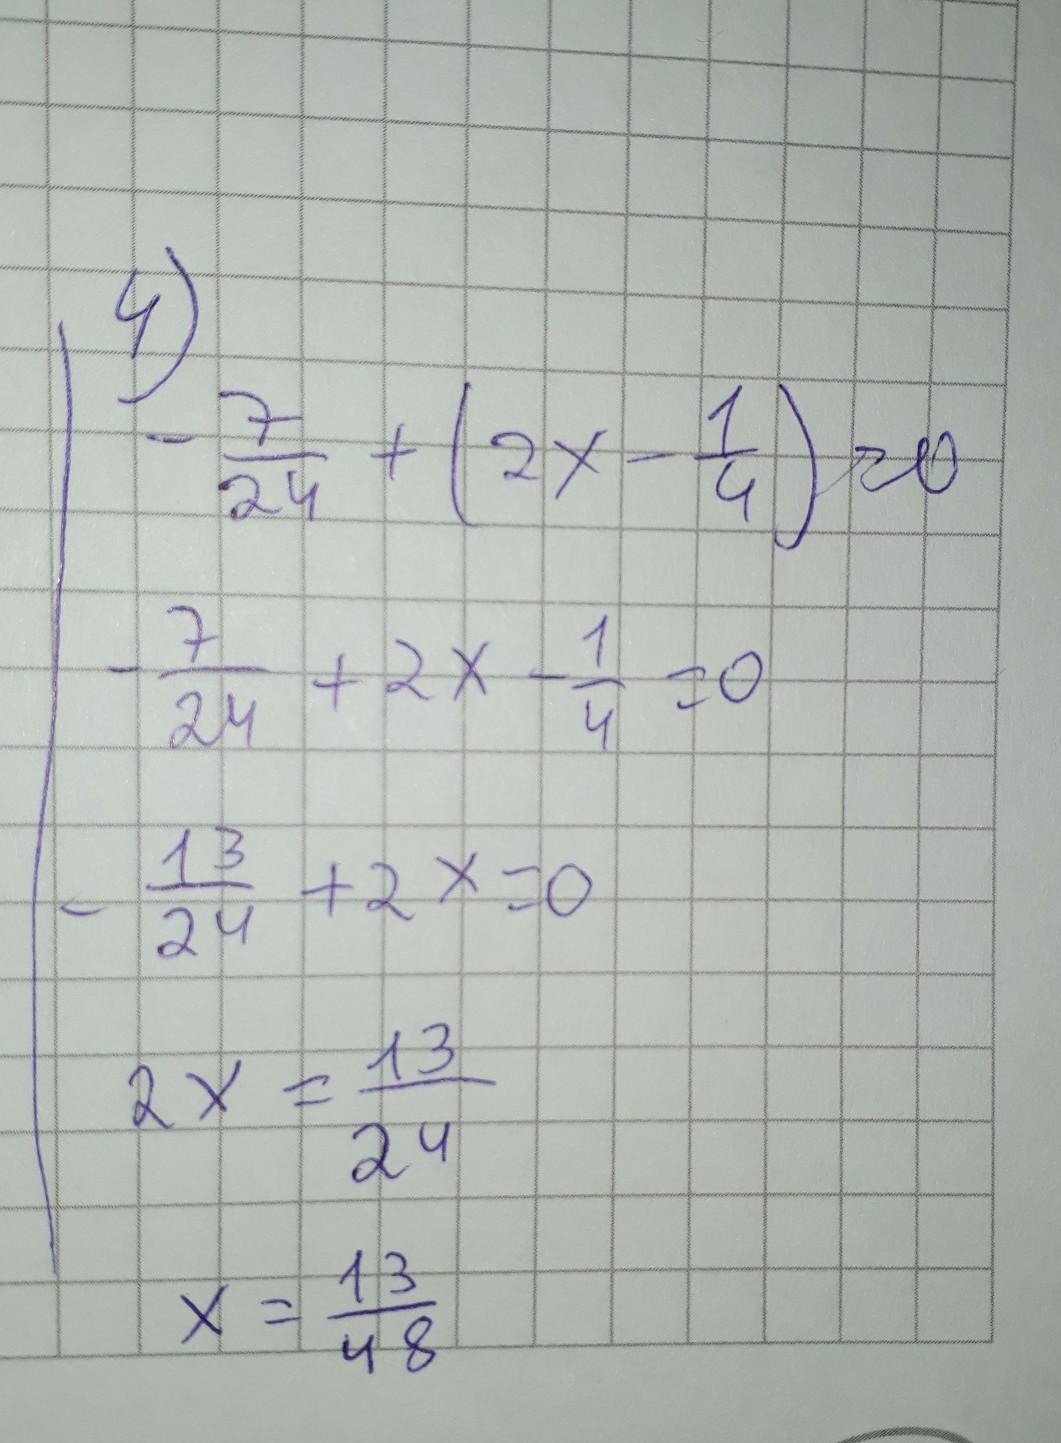 4)
- 7/24 + (2x - 1/4) = 0
- 7/24 + 2x - 1/4 = 0
- 13/24 + 2x = 0
2x = 13/24
x = 13/48